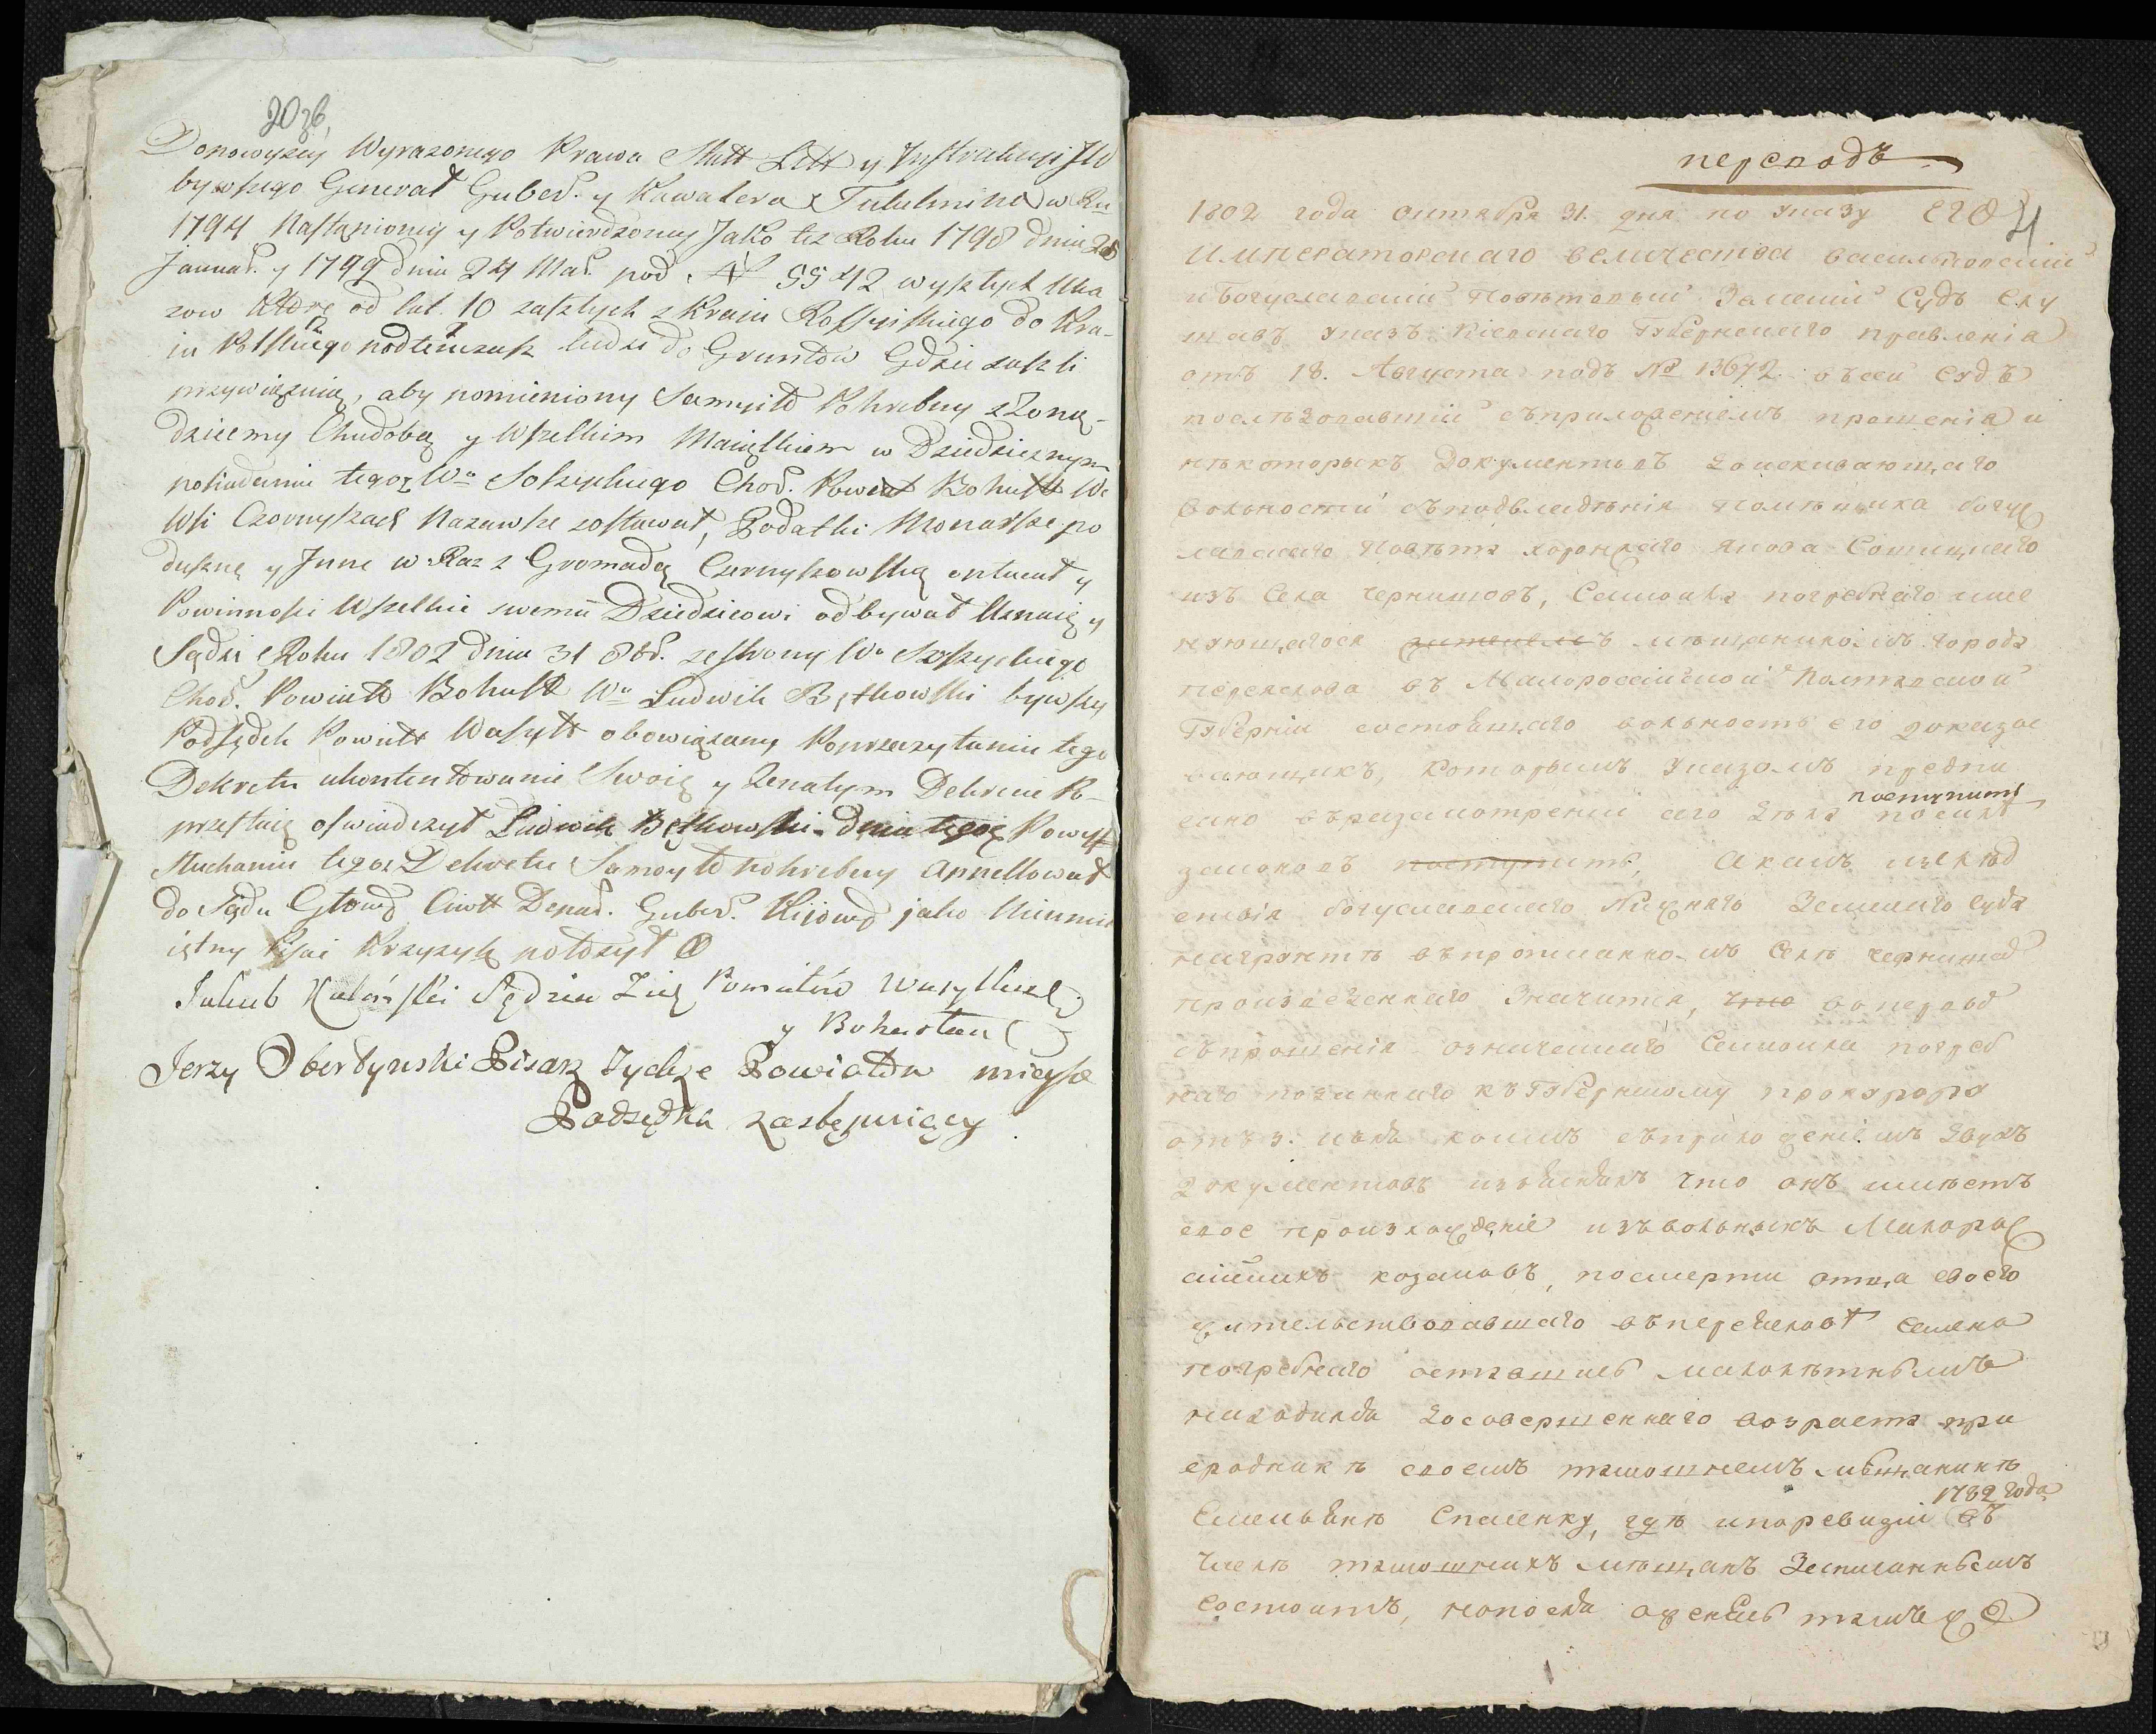 203б,
Donowyżey Wyrazonego Prawa Statt Litt y Instrukcyi JW
bywszego Generał Guber. y Kawalera Tutulmina w Ru
1794 Nastąpioney y Potwierdzoney Jako też Roku 1798 dnia 28
Januar. y 1799 dnia 24 Mar. pod № 5542 wyszłych Uka
zow Które od lat. 10 zaszłych z Kraiu Rossyiskiego do Kra-
iu Polskiego ludzi do Gruntów Gdzie zaszli
przywiązuią, aby pomieniony Samuyło Pohrebny z Żoną
dziećmy Chudobą y Wszelkim Maiątkiem w Dziedzicznym
posiadaniu tegoż Wo Soszyckiego Chor. Powiat Bohusł We
Wsi Czernyszach Nazawsze zostawał, Podatki Monarsze po
duszne y Inne w Raz z Gromadą Czernyszowską opłacał y
Powinności Wszelkie swemu Dziedzicowi odbywał Uznaię y
Sądzi Roku 1802 dnia 31 8br. ze strony Wo Soszyckiego
Chor. Powiatu Bohusł Wn Ludwik Bętkowski bywszy
Podsędek Powiatu Wasylk obowiązany Poprzeczytaniu tego
Dekretu ukontentowanie Swoię y Zenatym Dekrecie Po-
przestaię oswiadczył Ludwik Bętkowski. dnia tegoż Powysł
słuchaniu tegoż Dekretu Samoyło Pohrebny Appellował
do Sądu Głowo Ciwil Depar. Guber. Kijowo jako Nieumie
iętny Pisać Krzyżyk położył
Jakub Sędzia Zie Powiatów Wasylkow
y Bohusław
Jerzy Obertynski Pisarz Tychże Powiatów mieysce
Podsędka zastępuiący
переводъ
4
1802 года октября 31. дня по указу его
Императорскаго величества васильковскій
и Богуславскій Повѣтовый Земскій Судъ Слу
шавъ указъ Кіевскаго Губернскаго правленія
отъ 18. Августа подъ № 13672. въ сей судъ
послѣдовавшій съ приложеніемъ прошенія и
нѣкоторыхъ документовъ доискивающагося
вольности съ подвладѣнія помѣщика богу
славскаго повѣта хоронжаго Якова Сошицкаго
изъ Села чернишовъ, Самойла погребнаго име
нующагося жителемъ мѣщаниномъ города
переяслова въ Малороссійской Полтавской
Губерніи состоящаго вольность его доказыв
вающихъ, которымъ указомъ предпи
сано въ разсмотреніи сего дѣла поступить
посилѣ
законовъ поступить; Акакъ изслѣд
ствія богуславскаго Нижняго Земскаго Суда
на грунтѣ въ прописанномъ Селѣ чернишах
произведеннаго значится, что вопервыхъ
съ прошенія означеннаго Самойла погреб
наго поданнаго къ Губернскому прокурору
отъ 3. Июля коимъ съ приложеніемъ двухъ
документовъ изъяснялъ что онъ имѣетъ
свое происхожденіе изъ вольныхъ Малорос
сійскихъ козаковъ, посмерти отца своего
жительствовавшаго въ переяславѣ Семена
погребнаго оставшись малолѣтнымъ
находился до совершеннаго возраста при
сродникѣ своемъ тамошнемъ мѣщанинѣ
1782 года
Емельянѣ Спасенку, гдѣ ипоревизіи въ
числѣ тамошнихъ мѣщанъ Записаннымъ
состоитъ, нопосля оженясь тамъ же